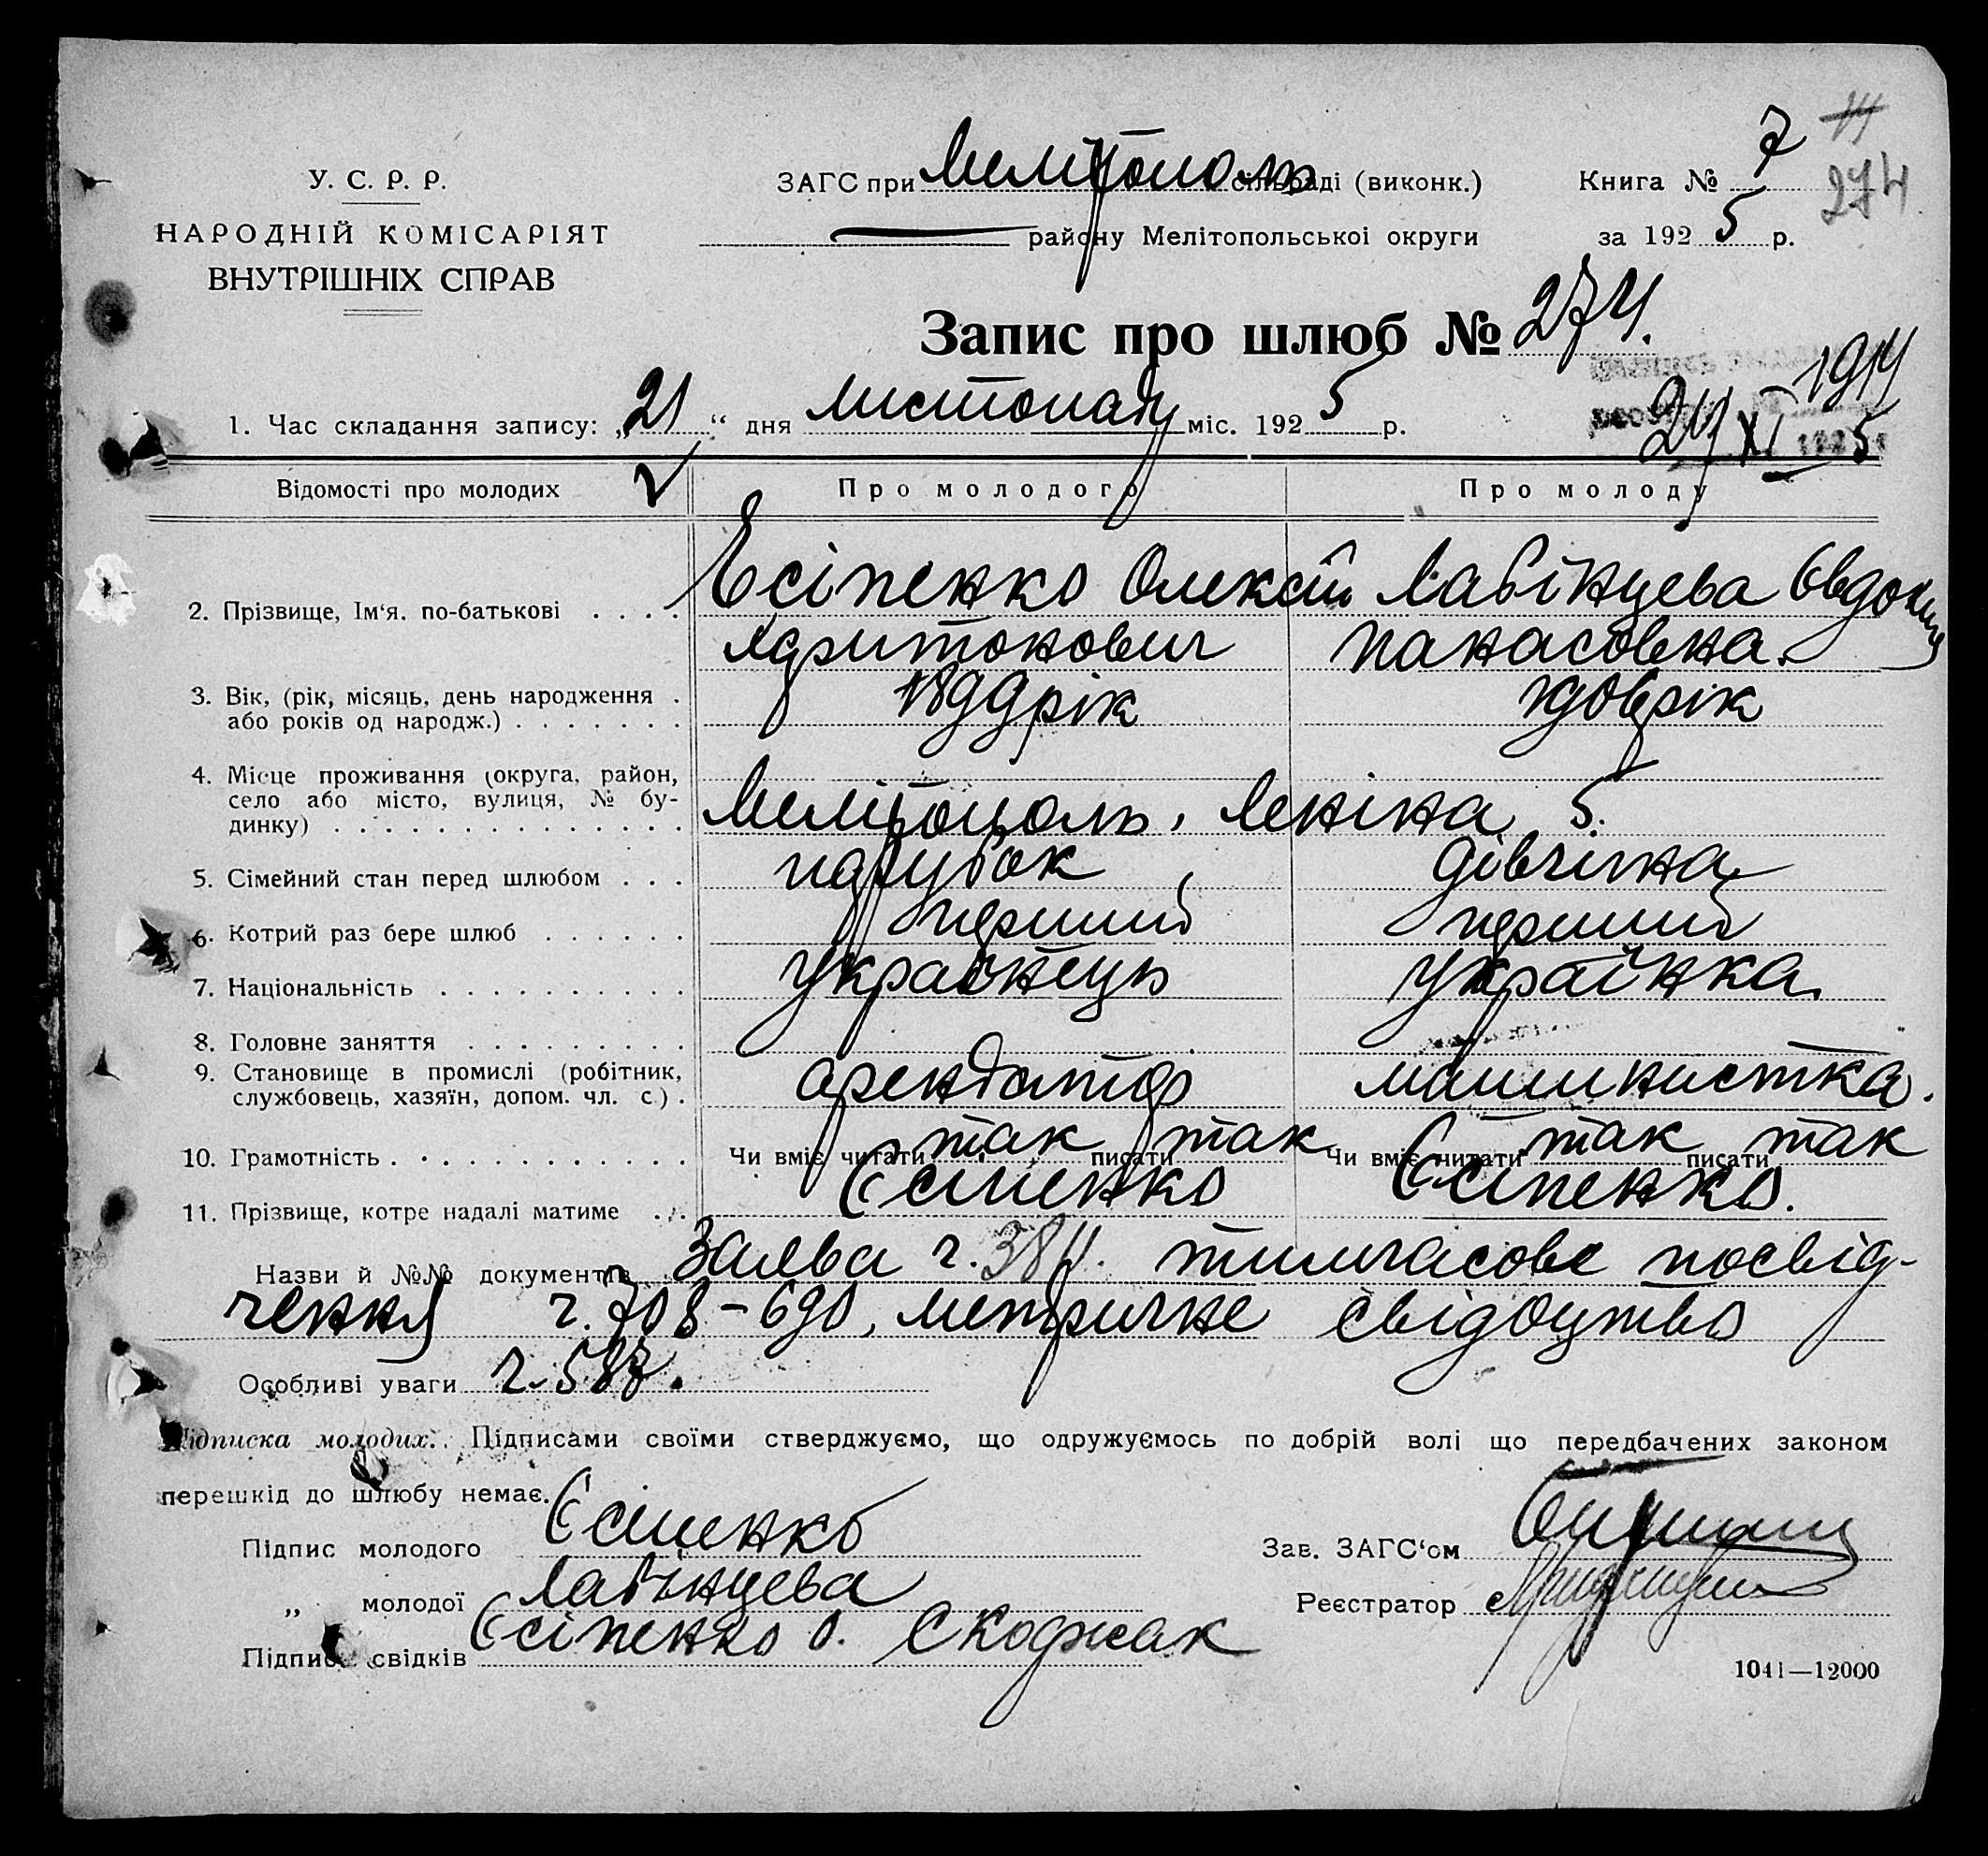 У. С. Р. Р.
НАРОДНІЙ КОМІСАРІЯТ
ВНУТРІШНІХ СПРАВ
ЗАГС при Мелітополь сільраді (виконк.)
району Мелітопольської округи
Книга № 7
274
за 1925 р.
Запис про шлюб № 274.
1. Час складання запису: „21“ дня листопаду міс. 1925 р.
1914
24 XI 5
Відомості про молодих Про молодого Про молоду
2. Прізвище, Ім'я. по-батькові . . . . Єсіпенко Олексій Лабінцева Євдокия
Харитонович Панасовна.
3. Вік, (рік, місяць, день народження .
або років од народж.) . . . . . . . 1899 рік рік
4. Місце проживання (округа, район,
село або місто, вулиця, № бу-
динку) . . . . . . . . . . . . . . . Мелітополь, Леніна 5.
5. Сімейний стан перед шлюбом . . . парубок дівчина
6. Котрий раз бере шлюб . . . . . . перший перший
7. Національність . . . . . . . . . . українець українка
8. Головне заняття . . . . . . . . .
9. Становище в промислі (робітник,
службовець, хазяїн, допом. чл. с.) . арендатор машинистка.
10. Грамотність . . . . . . . . . . . . Чи вміє читати так писати так Чи вміє читати так писати так
11. Прізвище, котре надалі матиме . . Єсіпенко Єсіпенко.
Назви й №№ документів Заява ч. 384. тимчасове посвід-
чення ч. 708-690, метричне свідоцтво
Особливі уваги ч. 587.
Підписка молодих. Підписами своїми стверджуємо, що одружуємось по добрій волі що передбачених законом
перешкід до шлюбу немає.
Підпис молодого Єсіпенко
Зав. ЗАГС'ом
„ молодої Лабінцева
Реєстратор
Підпис свідків Єсіпенко О. Скоджак
1041—12000